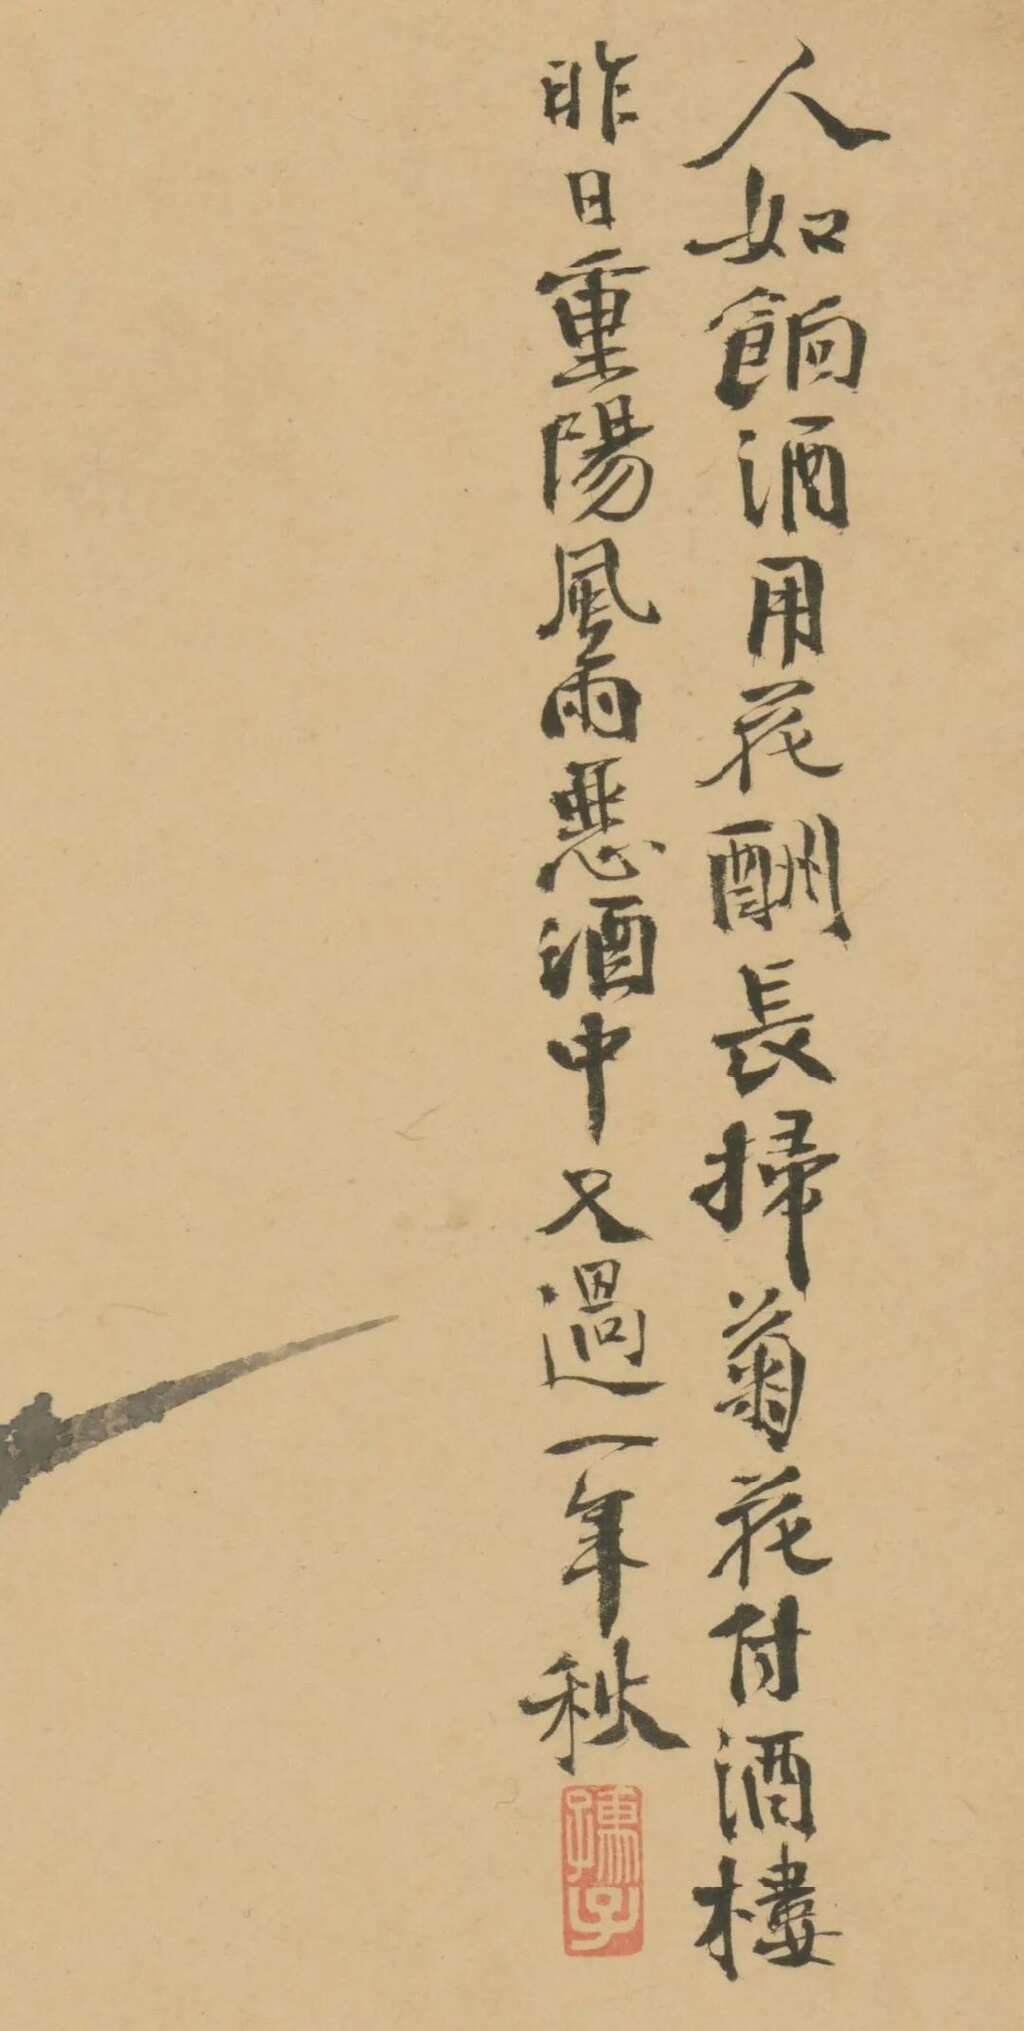 人如餉酒用花酬長掃菊花付酒樓
昨日重陽風雨惡酒中又過一年秋